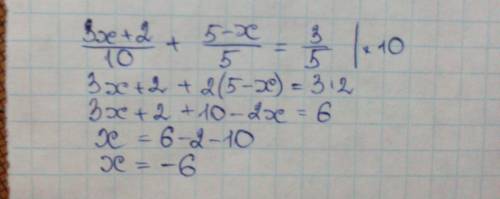 (3x+2)/10 + (5-x)/5 = 3/5 | · 10
3x+2 + 2(5-x) = 3·2
3x+2 +10-2x = 6
x = 6-2-10
x = -6